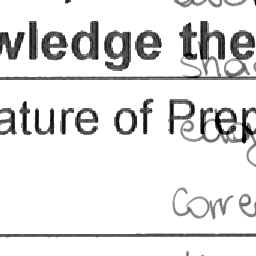 wledge the
sha
ature of Prep
Corre